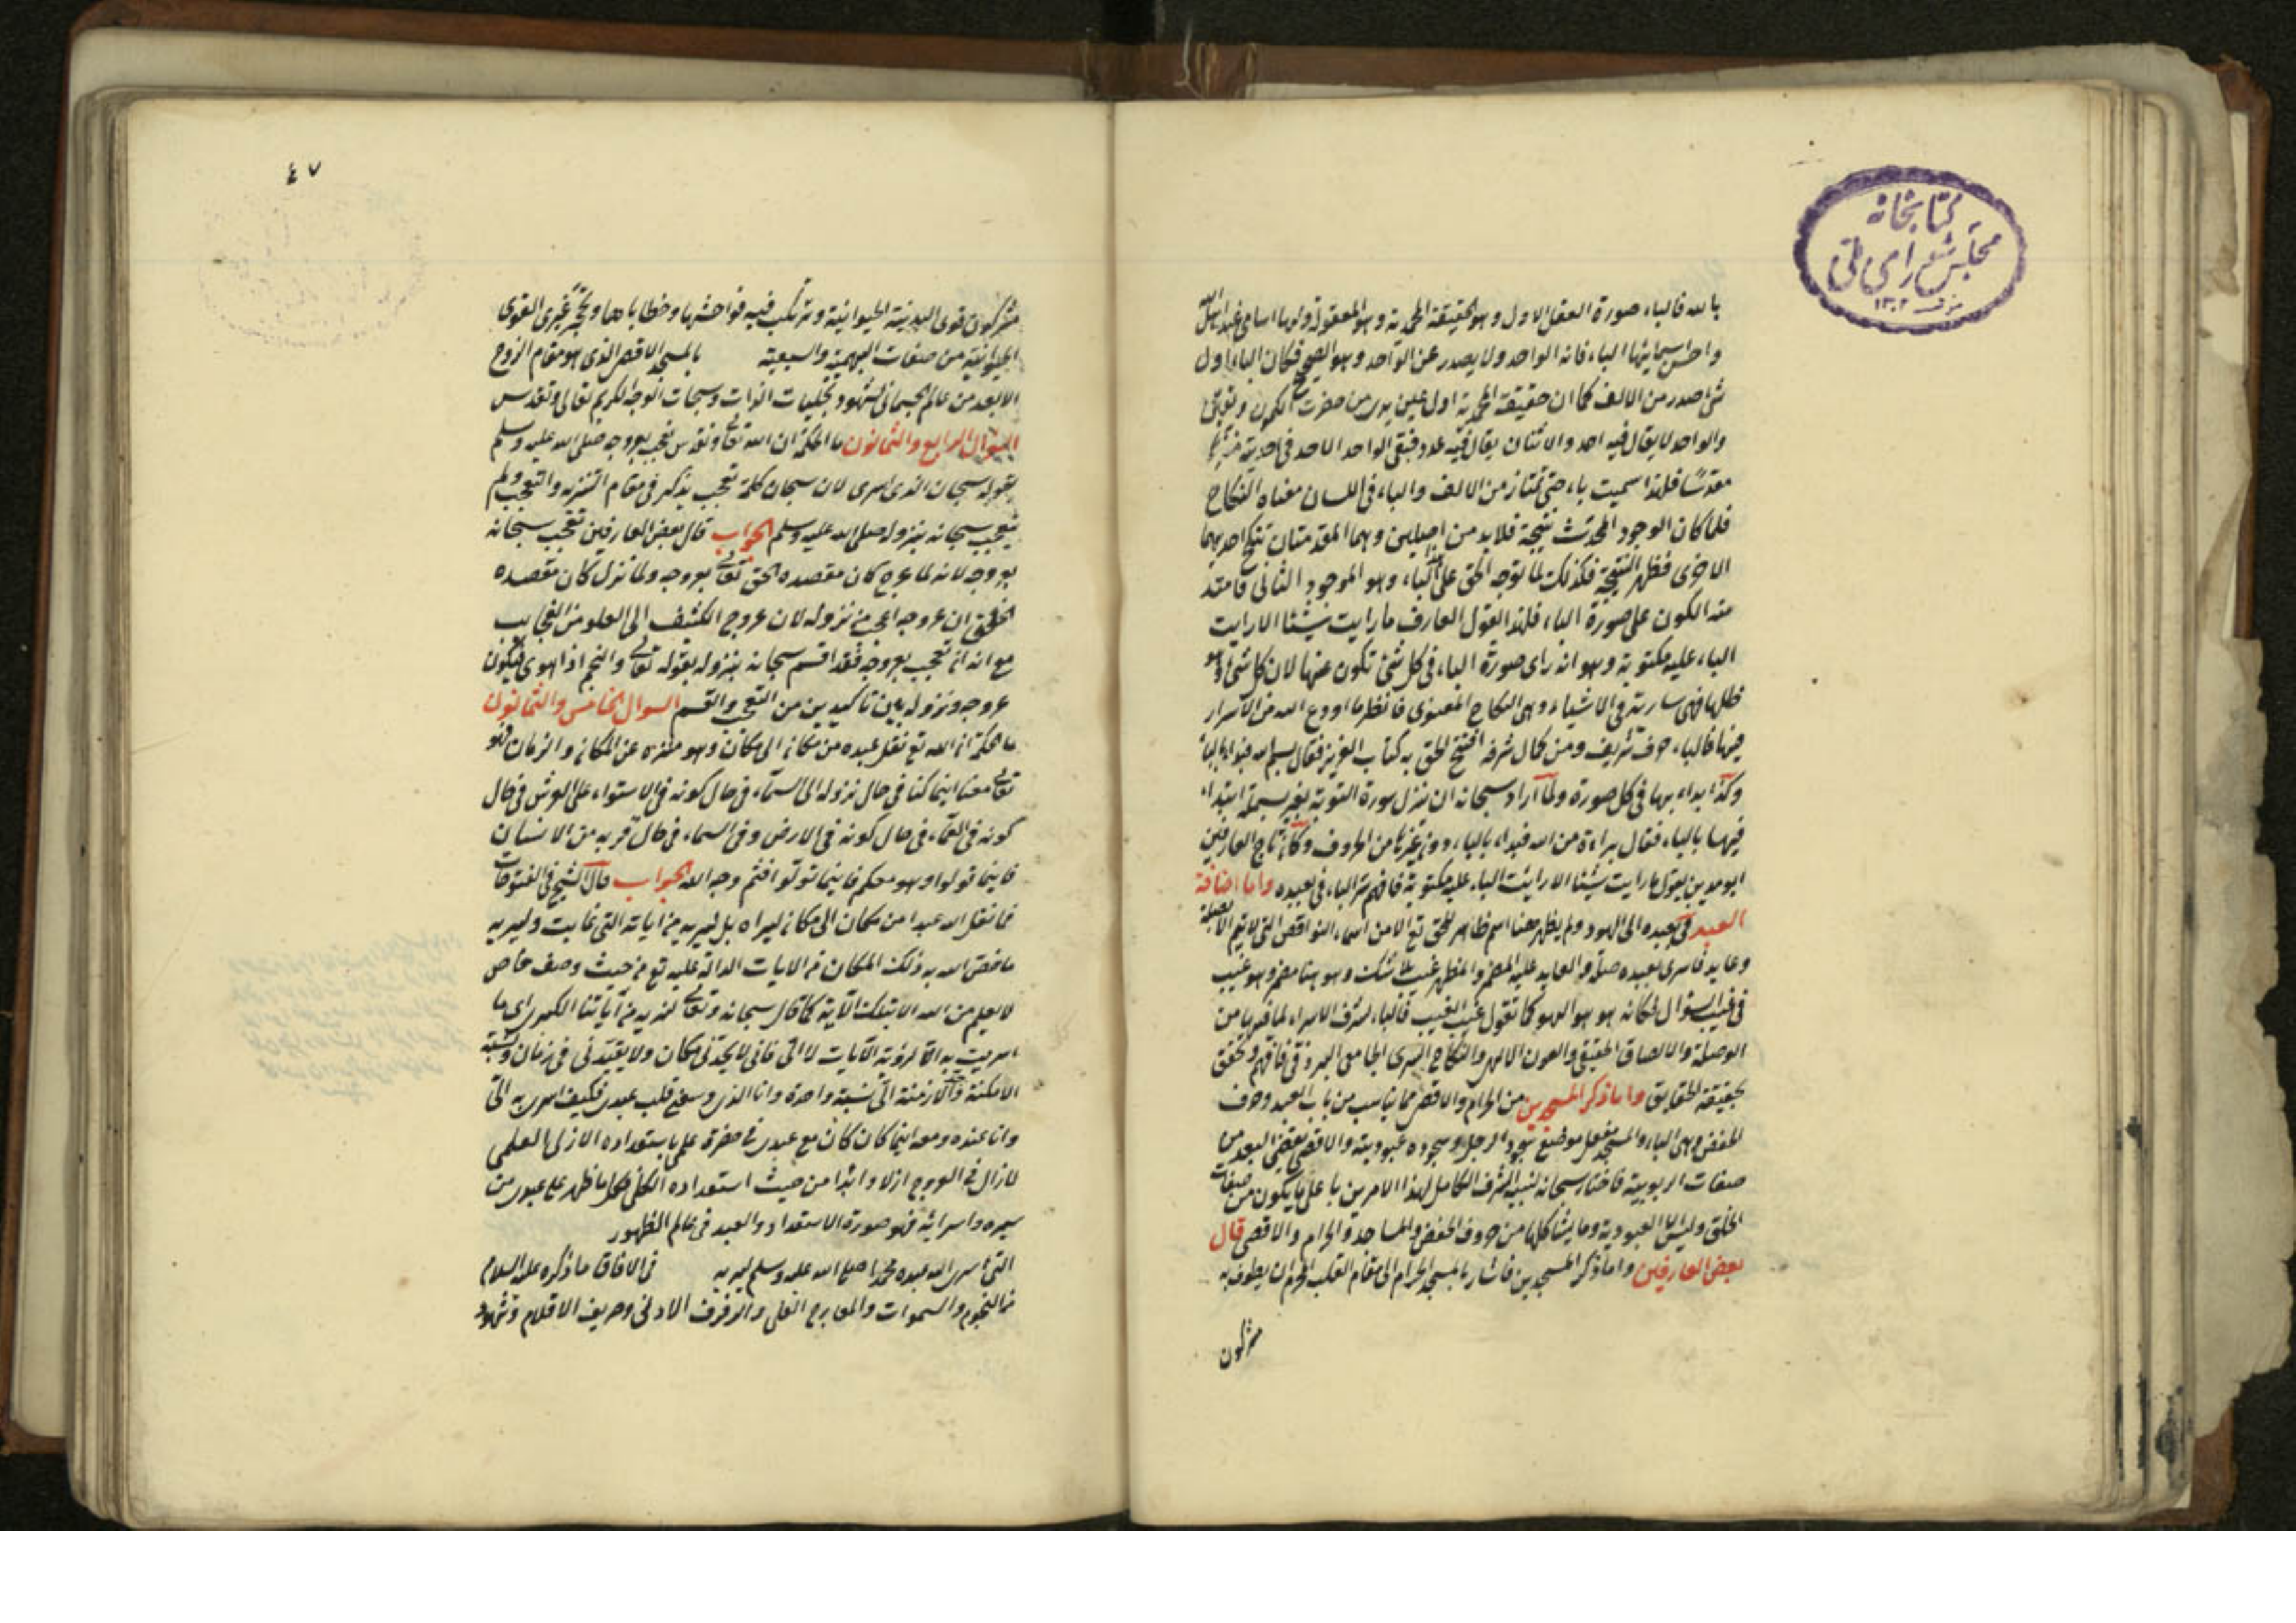 كتابخانه
مجلس شورای ملی
١٣٠٢
بالله فالباء صورة العقل الاول وهو الحقيقة المحمدية وهو المعقولة ولها اسامی عند اهل الله
واحسن اسمائها الباء فانه الواحد ولا يصدر عن الواحد وهو الصحيح فكان الباء اول
شئ صدر من الالف كما ان حقيقة المحمدية اول عين بدی من حضرت الكون وتوبتی
والواحد لا يقال فيه احد والاثنان يقال فيه عدد فبقی الواحد الاحد فی احديته
مقدسًا فلهذا سميت باء حتى تمتاز من الالف والباء فی اللسان معناه النكاح
فلما كان الوجود المحدث نتيجة فلابد من اصلين وهما المقدمتان تنكح احديهما
الاخری فظهر النتيجة فكذلك لما توجه الحق علی هذا الباء وهو الموجود الثانی فامتد
منه الكون علی صورة الباء فلهذا يقول العارف ما رايت شيئا الا رايت
الباء عليه مكتوبة وهو انه رای صورة الباء فی كل شئ تكون عنها لان كل شئ هو
ظلها فهی سارية فی الاشياء وهی النكاح المعنوی فانظر ما اودع الله من الاسرار
فيها فالباء حرف شريف ومن كمال شرفه افتتح الحق به كتاب العزيز فقال بسم الله فبداء بالباء
وكذا بداء بها فی كل صورة ولما اراد سبحانه ان ينزل سورة التوبة بغير بسملة ابتداء
فيها بالباء فقال براءة من الله فبداء بالباء دون غيرها من الحروف وكان تاج العارفين
ابو مدين يقول ما رايت شيئا الا رايت الباء عليه مكتوبة فافهم سر الباء فی بعبده واما اضافة
العبد فی بعبده الى الهو ولم يظهر هنا اسم ظاهر للحق تع الا من اسماء النواقص التی لا يتم الا بصلة
وعايد فاسری بعبده صلة والعايد عليه المضمر والمظهر غيب بلا شك وهو هنا مضمر وهو غيب
فی غيب السؤال فكانه هو هو الهو كما تقول غيب الغيب فالباء لشرف الاسراء لما فيها من
الوصلة والالصاق الحقيقی والعون الالهی والنكاح السری الجامی البرزقی فافهم وتحقق
بحقيقة الحقايق واما ذكر المسجدين من الحرام والاقصی مما يناسب من باب العبد وحرف
الخفض وهی الباء والمسجد مفعل موضع سجود الرجل وسجوده عبوديته والاقصی يقتضی البعد من
صفات الربوبية فاختار سبحانه لنبيه الشرف الكامل لهذا الامرين باعلی ما يكون من صفات
الخلق وليس الا العبودية وما يشاكلها من حروف الخفض والمساجد والحرام والاقصی قال
بعض العارفين واما ذكر المسجدين فاشار بالمسجد الحرام الى مقام القلب الحرام ان يطوف به
مشركون
٤٧
مشركون قوی البدنية الحيوانية وترتكب فيه فواحشها وخطاياها وتحجّ غيری القوی
الحيوانية من صفات البهيمية والسبعية بالمسجد الاقصی الذی هو مقام الروح
الابعد من عالم الجسمانی لشهود تجليات الذات وسبحات الوجه الكريم تعالی وتقدس
السؤال الرابع والثمانون ما الحكمة ان الله تعالی وتقدس تعجب بعروجه صلی الله عليه وسلم
بقوله سبحان الذی اسری لان سبحان كلمة تعجب يذكر فی مقام التنزيه والتعجب ولم
يتعجب سبحانه بنزوله صلی الله عليه وسلم الجواب قال بعض العارفين تعجب سبحانه
بعروجه لانه لما عرج كان مقصده الحق تعالی بعروجه ولما نزل كان مقصده
الخلق ان عروجه اعجب من نزوله لان عروج الكشف الى العلو من العجايب
مع انه ان تعجب بعروجه فقد اقسم سبحانه بنزوله بقوله تعالی والنجم اذا هوی فيكون
عروجه ونزوله بين تاكيدين من التعجب والقسم السوال الخامس والثمانون
ما الحكمة ان الله تع نقل عبده من مكان الى مكان وهو منزه عن المكان والزمان فهو
تعالی معنا اينما كنا فی حال نزوله الى السماء فی حال كونه فی الاستواء علی العرش فی حال
كونه فی العماء فی حال كونه فی الارض وفی السماء فی حال قربه من الانسان
فاينما تولوا وهو معكم فاينما تولوا فثم وجه الله الجواب قال الشيخ فی الفتوحات
فما نقل الله عبدا من مكان الى مكان ليراه بل ليريه من اياته التی غابت وليريه
ما خص الله به ذلك المكان من الايات الدالة عليه تع من حيث وصف خاص
لا يعلم من الله الا بتلك الآية كما قال سبحانه وتعالی لنريه من آياتنا الكبری ای ما
اسريت به الا لرؤية الآيات لا الیّ فانی لا يحدّنی مكان ولا يقيّدنی فی زمان ونسبة
الامكنة والازمنة الیّ نسبة واحدة وانا الذی وسعنی قلب عبدی فكيف اسری به الیّ
وانا عنده ومعه اينما كان كان مع عبدی فی حضرة علمی باستعداده الازلی العلمی
لا زال فی العروج ازلا وابدا من حيث استعداده الكلی فكل ما ظهر علی عبدی من
سيره واسرائه فهو صورة الاستعداد والعبد فی عالم الظهور
التی اسری الله عبده محمدا صلی الله عليه وسلم ليريه فی الافاق ما ذكره عليه السلام
من النجوم والسموات والمعارج العلی والرفرف الادنی وصريف الاقلام وشهود